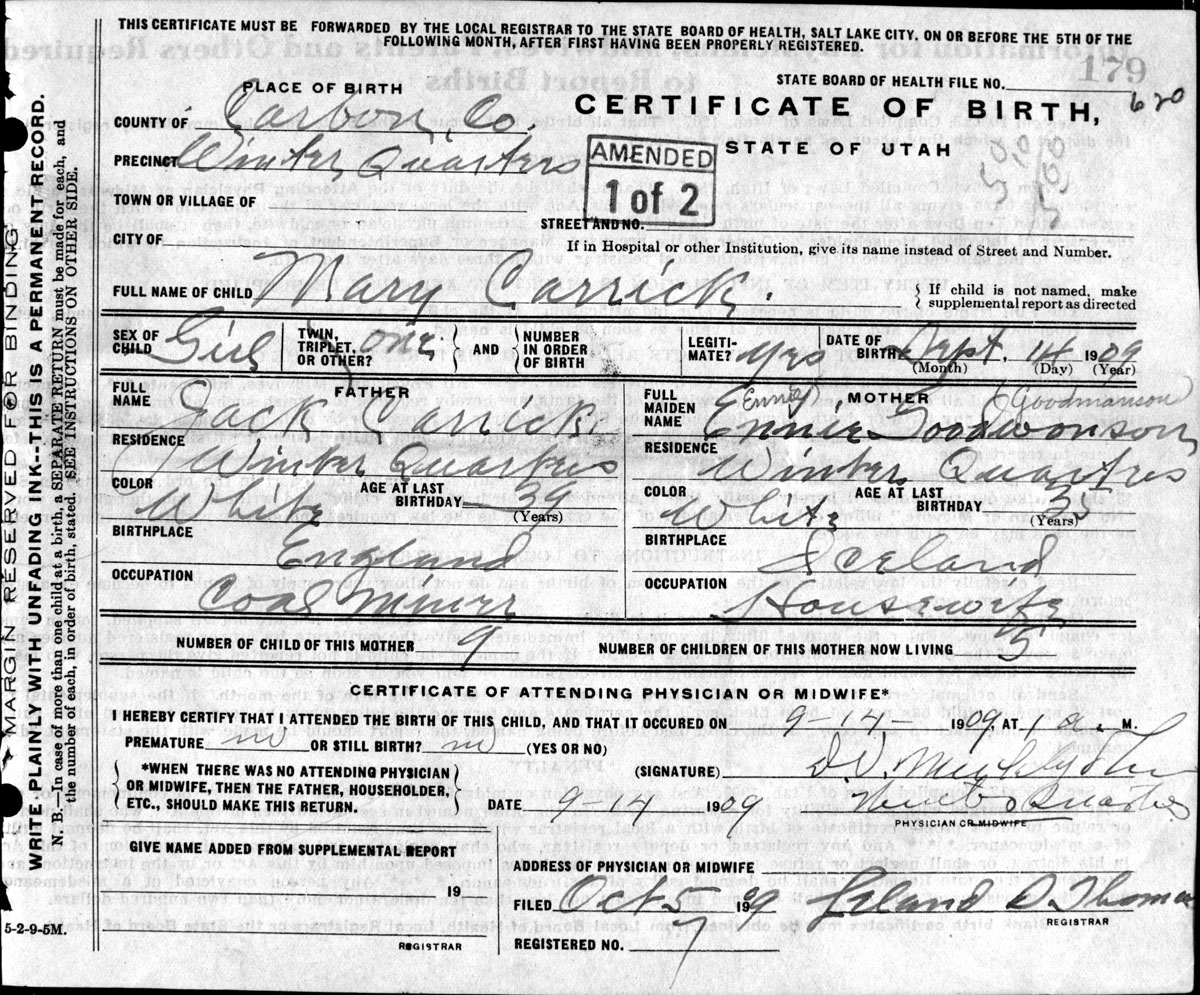 THIS CERTIFICATE MUST BE FORWARDED BY THE LOCAL REGISTRAR TO THE STATE BOARD OF HEALTH, SALT LAKE CITY, ON OR BEFORE THE 5TH OF THE
FOLLOWING MONTH, AFTER FIRST HAVING BEEN PROPERLY REGISTERED.
179
PLACE OF BIRTH
STATE BOARD OF HEALTH FILE NO.
620
COUNTY OF Carbon, Co.
CERTIFICATE OF BIRTH,
PRECINCT Winter Quarters
AMENDED
1 of 2
STATE OF UTAH
TOWN OR VILLAGE OF
STREET AND NO.
CITY OF
If in Hospital or other Institution, give its name instead of Street and Number.
FULL NAME OF CHILD Mary Carrick.
If child is not named, make
supplemental report as directed
SEX OF CHILD Girl
TWIN, TRIPLET, OR OTHER? one
AND NUMBER IN ORDER OF BIRTH
LEGITIMATE? yes
DATE OF BIRTH Sept. 14 1909
(Month) (Day) (Year)
FATHER
FULL NAME Jack Carrick
RESIDENCE Winter Quarters
COLOR White AGE AT LAST BIRTHDAY 39
(Years)
BIRTHPLACE England
OCCUPATION Coal Miner
MOTHER
Goodmanson
FULL MAIDEN NAME Ennie Goodwonson
RESIDENCE Winter Quarters
COLOR White AGE AT LAST BIRTHDAY 35
(Years)
BIRTHPLACE Iceland
OCCUPATION Housewife
NUMBER OF CHILD OF THIS MOTHER 9 NUMBER OF CHILDREN OF THIS MOTHER NOW LIVING 5
CERTIFICATE OF ATTENDING PHYSICIAN OR MIDWIFE*
I HEREBY CERTIFY THAT I ATTENDED THE BIRTH OF THIS CHILD, AND THAT IT OCCURED ON 9-14- 1909 AT 1 a. M.
PREMATURE no OR STILL BIRTH? no (YES OR NO)
*WHEN THERE WAS NO ATTENDING PHYSICIAN
OR MIDWIFE, THEN THE FATHER, HOUSEHOLDER,
ETC., SHOULD MAKE THIS RETURN.
(SIGNATURE)
DATE 9-14 1909
Winter Quarters
PHYSICIAN OR MIDWIFE
GIVE NAME ADDED FROM SUPPLEMENTAL REPORT
19
REGISTRAR
ADDRESS OF PHYSICIAN OR MIDWIFE
FILED Oct 5 1909 Leland D Thomas
REGISTRAR
REGISTERED NO. 7
MARGIN RESERVED FOR BINDING
WRITE PLAINLY WITH UNFADING INK---THIS IS A PERMANENT RECORD.
N. B.—In case of more than one child at a birth, a SEPARATE RETURN must be made for each, and
the number each, in order of birth, stated. SEE INSTRUCTIONS ON OTHER SIDE.
5-2-9-5M.